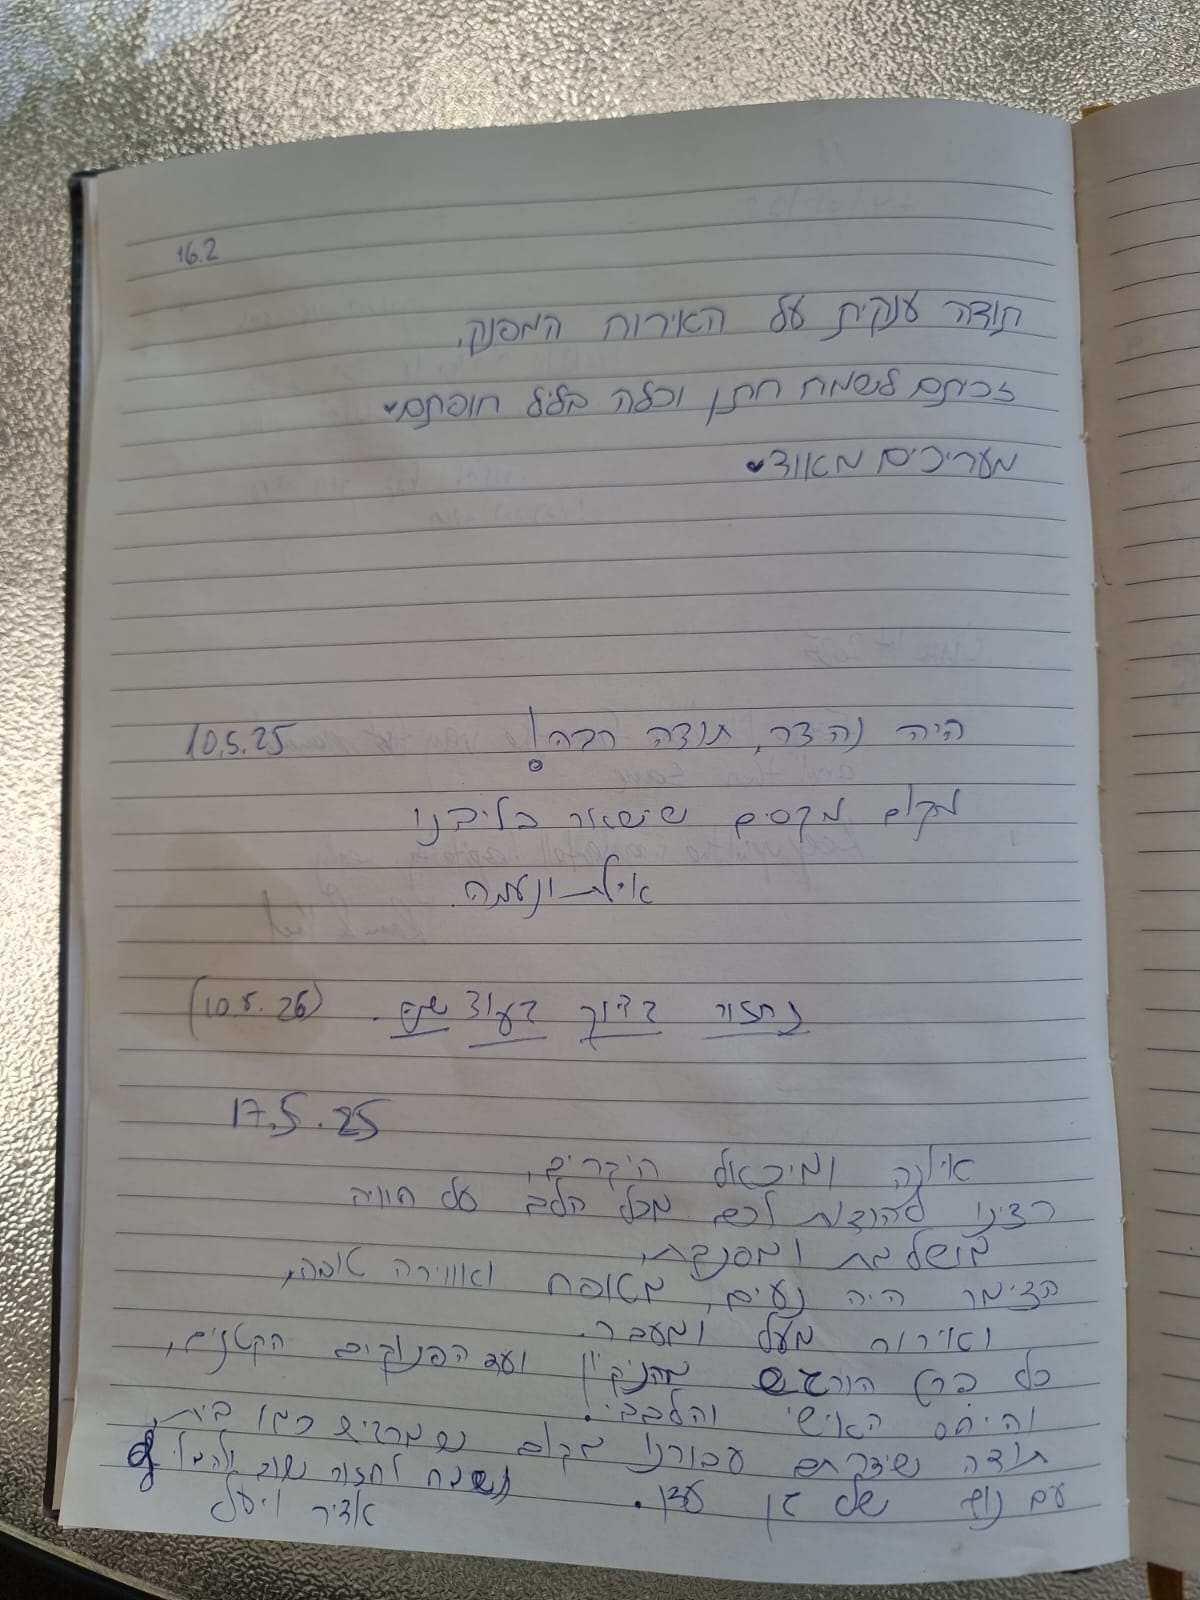 16.2
תודה ענקית על האירוח המפנק.
זכיתם לשמח חתן וכלה בליל חופתם
מעריכים מאווד
היה נהדר, תודה רבה! 10.5.25
מקום מקסים שישאר בליבנו
אילת ונעמה.
נחזור בדוק בעוד שנה. (10.5.26)
17.5.25
אילנה ומיכאל היקרים,
רצינו להודות לכם מכל הלב על חוויה
מושלמת ומפנקת,
הצימר היה נעים, מטופח ואווירה טובה,
ואירוח מעל ומעבר.
כל פרט הורגש מהניקיון ועד הפנוקים הקטנים,
והיחס האישי והלבבי!
תודה שיצרתם עבורנו מקום שמרגיש כמו בית,
עם נוף של גן עדן. נשמח לחזור שוב
אדיר ויעל